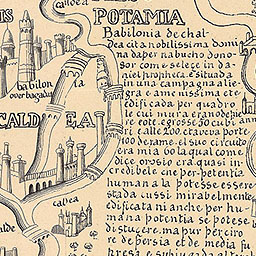 IS
POTAMIA
Babilonia de chal
dea cita nobilissima domi
na da per nabucho dono
sor com e se lege in da
niel propheca. e situada
in una campagna alie
gra e amenissima et e
edificada per quadro
le cui mura erano de
babilon
over bagadad
la
CALDEA
rote. e grosse 50 cubiti an
ri e alle 200. et aveva porte
100 de rame. el suo circuito
era mia 60 la qual come
dice orosio era quasi in
credibele che per potentia
humana la potesse essere
stada cussi mirabelmente
edificata ni anche per hu
mana potentia se potesse
distucer. ma pur per ciro
re de persia et de media fu
presa e subiugada altri
caldea
alde